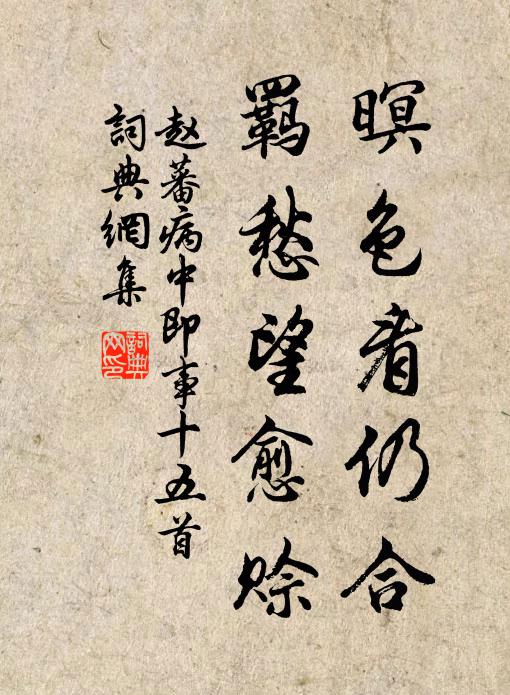 暝色看仍合
羈愁望愈賒
赵蕃病中即事十五首
詞典網集
詞典网印